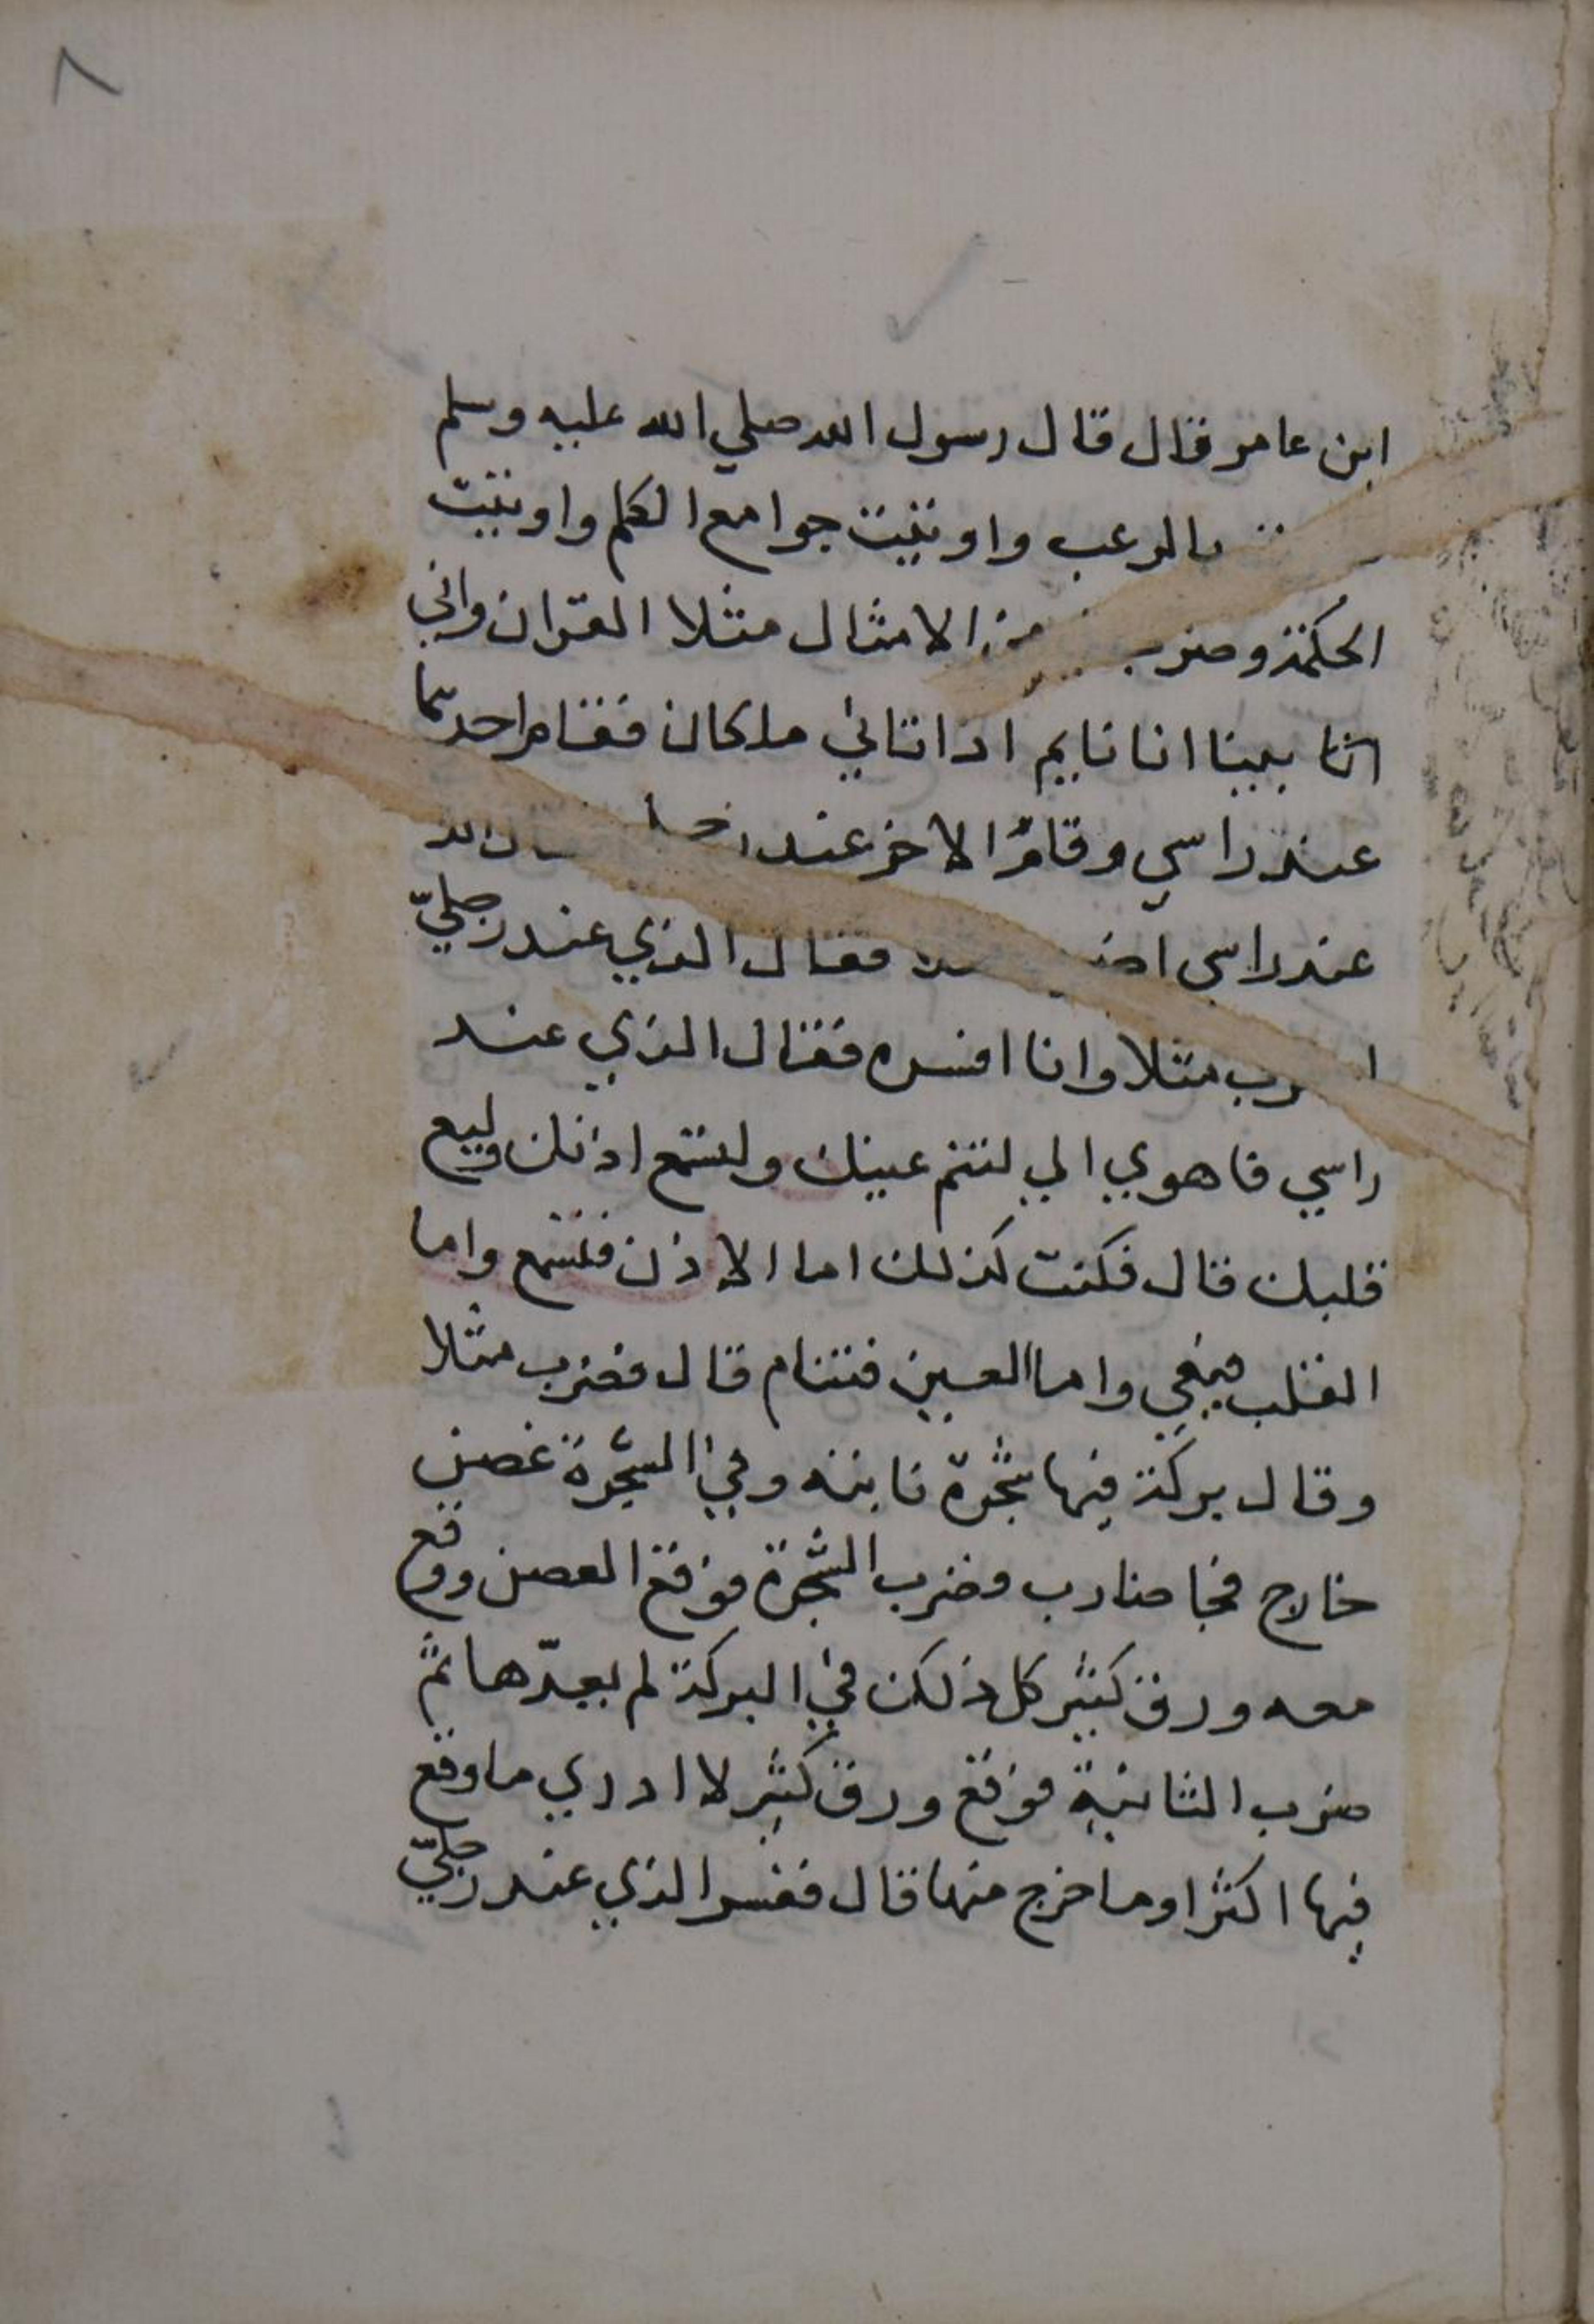 ٨
ابن عامر قال قال رسول الله صلي الله عليه وسلم
بالرعب واوتيت جوامع الكلم واوتيت
الحكمة وضرب من الامثال مثلا القران واني
انا بينا انا نايم اذ اتاني ملكان فقام احدهما
عند راسي وقام الاخر عند
عند راسي فقال الذي عند رجليّ
مثلا وانا افسره فقال الذي عند
راسي فاهوي الي لتنم عينك ولتسمع اذنك وليع
قلبك قال فكنت كذلك اما الاذن فتسمع واما
القلب فيعي واما العين فتنام قال فضرب مثلا
وقال بركة فيها شجرة نابته وفي الشجرة غصن
خارج فجا ضارب فضرب الشجرة فوقع الغصن ووقع
معه ورق كثير كل ذلك في البركة لم يعدّها ثم
ضرب الثانية فوقع ورق كثير لا ادري ما وقع
فيها اكثر او ما خرج منها قال ففسر الذي عند رجليّ